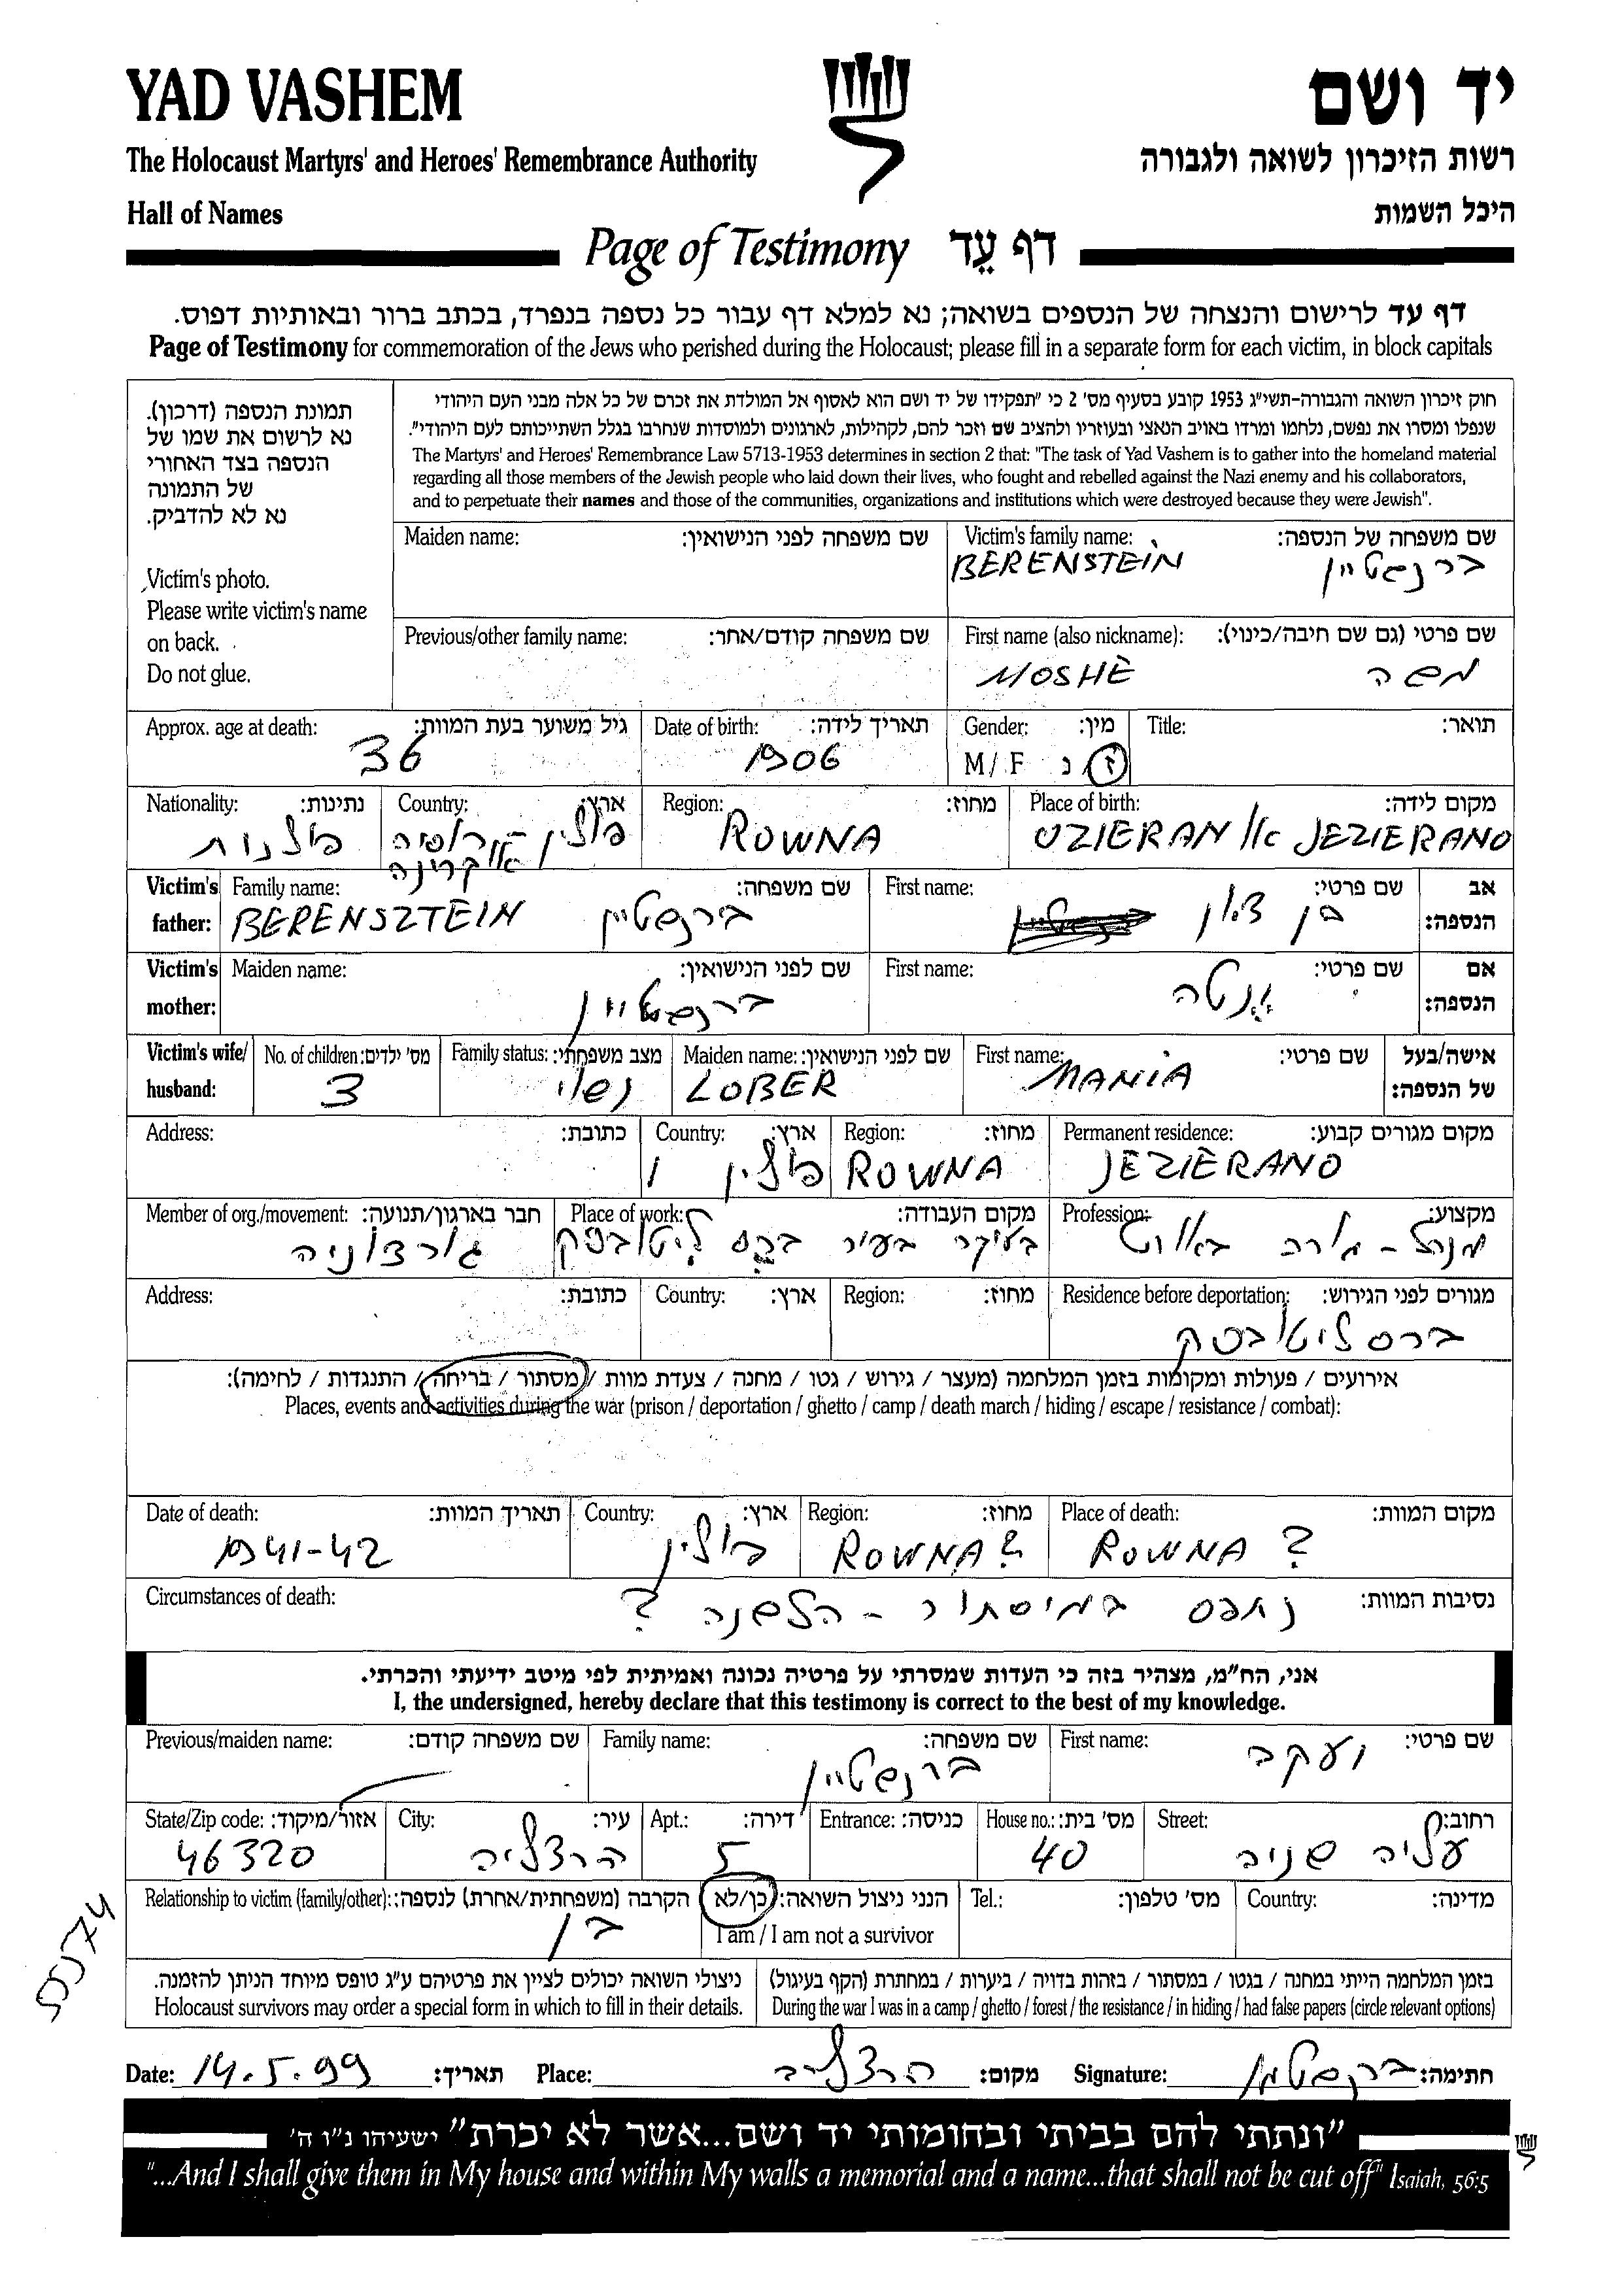 YAD VASHEM
יד ושם
The Holocaust Martyrs' and Heroes' Remembrance Authority
רשות הזיכרון לשואה ולגבורה
Hall of Names
היכל השמות
Page of Testimony דף עֵד
דף עד לרישום והנצחה של הנספים בשואה; נא למלא דף עבור כל נספה בנפרד, בכתב ברור ובאותיות דפוס.
Page of Testimony for commemoration of the Jews who perished during the Holocaust; please fill in a separate form for each victim, in block capitals
תמונת הנספה (דרכון).
נא לרשום את שמו של
הנספה בצד האחורי
של התמונה
נא לא להדביק.
Victim's photo.
Please write victim's name
on back.
Do not glue.
חוק זיכרון השואה והגבורה-תשי"ג 1953 קובע בסעיף מס' 2 כי "תפקידו של יד ושם הוא לאסוף אל המולדת את זכרם של כל אלה מבני העם היהודי
שנפלו ומסרו את נפשם, נלחמו ומרדו באויב הנאצי ובעוזריו ולהציב שם וזכר להם, לקהילות, לארגונים ולמוסדות שנחרבו בגלל השתייכותם לעם היהודי".
The Martyrs' and Heroes' Remembrance Law 5713-1953 determines in section 2 that: "The task of Yad Vashem is to gather into the homeland material
regarding all those members of the Jewish people who laid down their lives, who fought and rebelled against the Nazi enemy and his collaborators,
and to perpetuate their names and those of the communities, organizations and institutions which were destroyed because they were Jewish".
Maiden name: שם משפחה לפני הנישואין: Victim's family name: שם משפחה של הנספה:
BERENSTEIN ברנשטיין
Previous/other family name: שם משפחה קודם/אחר: First name (also nickname): שם פרטי (גם שם חיבה/כינוי):
MOSHE משה
Approx. age at death: גיל משוער בעת המוות: Date of birth: תאריך לידה: Gender: מין: Title: תואר:
36 1906 M/ F ז נ
Nationality: נתינות: Country: ארץ: Region: מחוז: Place of birth: מקום לידה:
פולנית פולין - רוסיה ROWNA OZIERAN או JEZIERANO
אוקרינה
Victim's father: Family name: שם משפחה: First name: שם פרטי: אב הנספה:
BERENSZTEIN ברנשטיין בן ציון
Victim's mother: Maiden name: שם לפני הנישואין: First name: שם פרטי: אם הנספה:
ברנשטיין
Victim's wife/ husband: No. of children: מס' ילדים: Family status: מצב משפחתי: Maiden name: שם לפני הנישואין: First name: שם פרטי: אישה/בעל של הנספה:
3 נשוי LOBER MANIA
Address: כתובת: Country: ארץ: Region: מחוז: Permanent residence: מקום מגורים קבוע:
פולין ROWNA JEZIERANO
Member of org./movement: חבר בארגון/תנועה: Place of work: מקום העבודה: Profession: מקצוע:
גורדוניה בעיקר בעיר ברסק ליטובסק מנהל - מורה באורט
Address: כתובת: Country: ארץ: Region: מחוז: Residence before deportation: מגורים לפני הגירוש:
ברסט ליטובסק
אירועים / פעולות ומקומות בזמן המלחמה (מעצר / גירוש / גטו / מחנה / צעדת מוות / מסתור / בריחה / התנגדות / לחימה):
Places, events and activities during the war (prison / deportation / ghetto / camp / death march / hiding / escape / resistance / combat):
Date of death: תאריך המוות: Country: ארץ: Region: מחוז: Place of death: מקום המוות:
1941-42 פולין ROWNA ? ROWNA ?
Circumstances of death: נסיבות המוות:
נתפס במיסתור - הלשנה ?
אני, הח"מ, מצהיר בזה כי העדות שמסרתי על פרטיה נכונה ואמיתית לפי מיטב ידיעתי והכרתי.
I, the undersigned, hereby declare that this testimony is correct to the best of my knowledge.
Previous/maiden name: שם משפחה קודם: Family name: שם משפחה: First name: שם פרטי:
ברנשטיין יעקב
State/Zip code: אזור/מיקוד: City: עיר: Apt.: דירה: Entrance: כניסה: House no.: מס' בית: Street: רחוב:
46320 הרצליה 5 40 עליה שניה
Relationship to victim (family/other): הקרבה (משפחתית/אחרת) לנספה: הנני ניצול השואה: כן/לא Tel.: מס' טלפון: Country: מדינה:
בן I am / I am not a survivor
ניצולי השואה יכולים לציין את פרטיהם ע"ג טופס מיוחד הניתן להזמנה. בזמן המלחמה הייתי במחנה / בגטו / במסתור / בזהות בדויה / ביערות / במחתרת (הקף בעיגול)
Holocaust survivors may order a special form in which to fill in their details. During the war I was in a camp / ghetto / forest / the resistance / in hiding / had false papers (circle relevant options)
Date: 14.5.99 תאריך: Place: הרצליה מקום: Signature: ברנשטיין חתימה:
"ונתתי להם בביתי ובחומותי יד ושם...אשר לא יכרת" ישעיהו נ"ו ה'
"...And I shall give them in My house and within My walls a memorial and a name...that shall not be cut off" Isaiah, 56:5